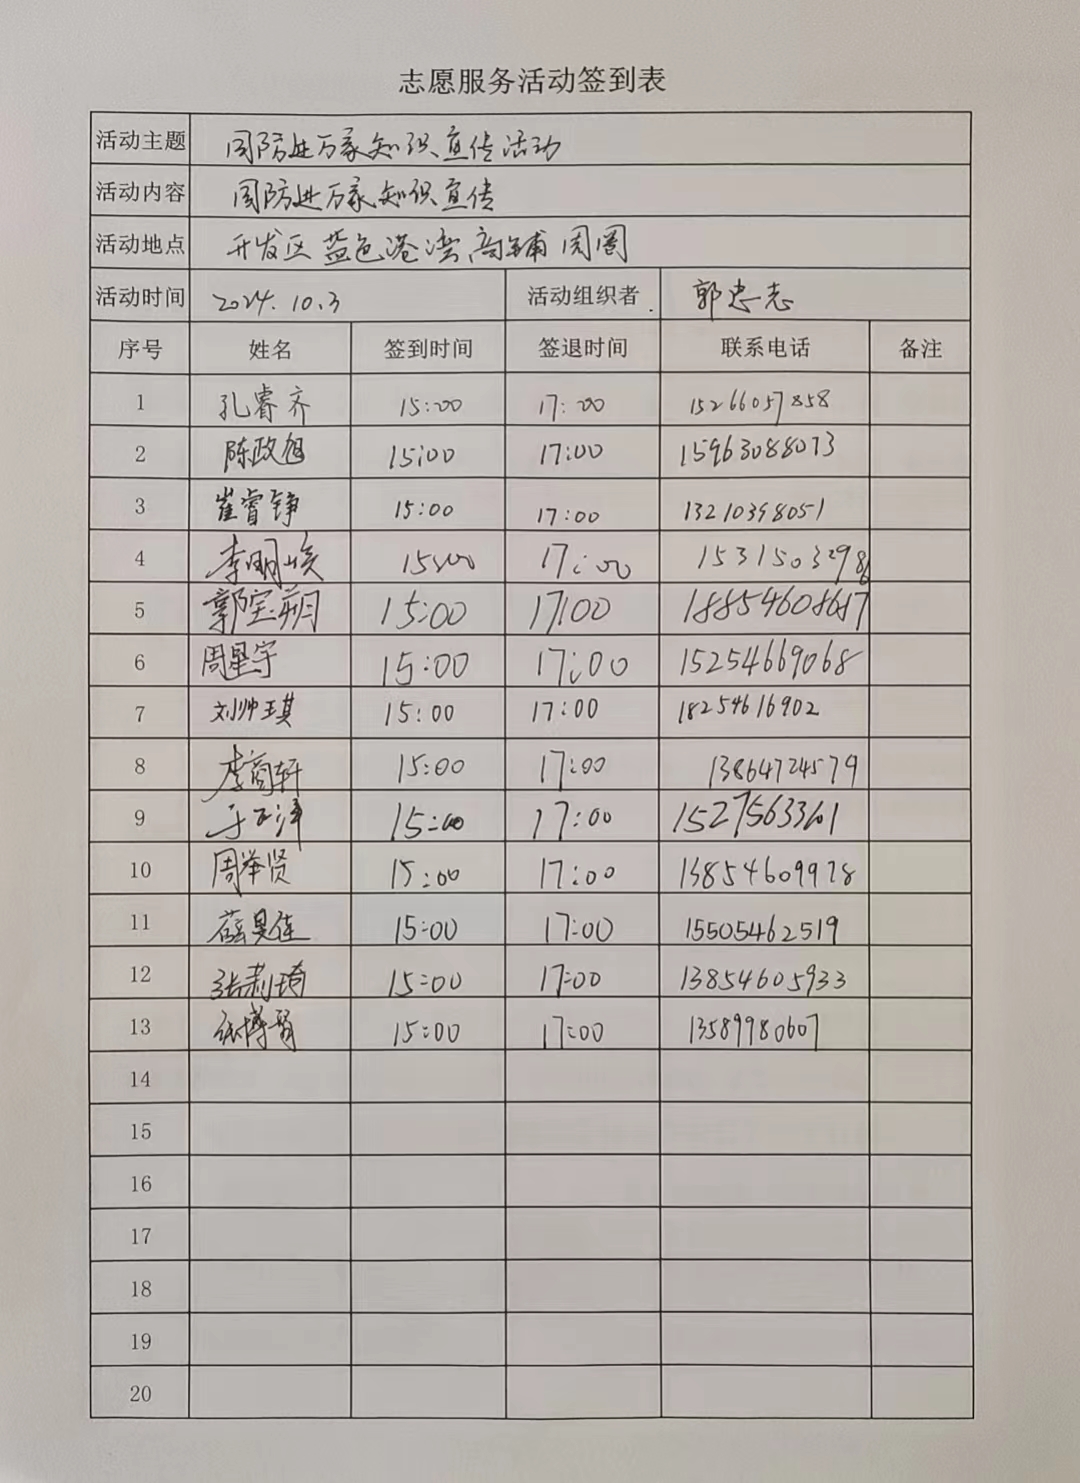 志愿服务活动签到表
活动主题 国防进万家知识宣传活动
活动内容 国防进万家知识宣传
活动地点 开发区蓝色港湾商铺周围
活动时间 2024.10.3 活动组织者 郭忠志
序号 姓名 签到时间 签退时间 联系电话 备注
1 孔睿齐 15:00 17:00 15266057858
2 陈政旭 15:00 17:00 15963088073
3 崔睿铮 15:00 17:00 13210398051
4 李明 15:00 17:00 15315032986
5 郭宝朔 15:00 17:00 18854608687
6 周星宇 15:00 17:00 15254669068
7 刘帅琪 15:00 17:00 18254616902
8 李商轩 15:00 17:00 13864724579
9 15:00 17:00 15275633601
10 周举贤 15:00 17:00 13854609978
11 薛昊佳 15:00 17:00 15505462519
12 张莉琦 15:00 17:00 13854605933
13 张博 15:00 17:00 13589980607
14
15
16
17
18
19
20